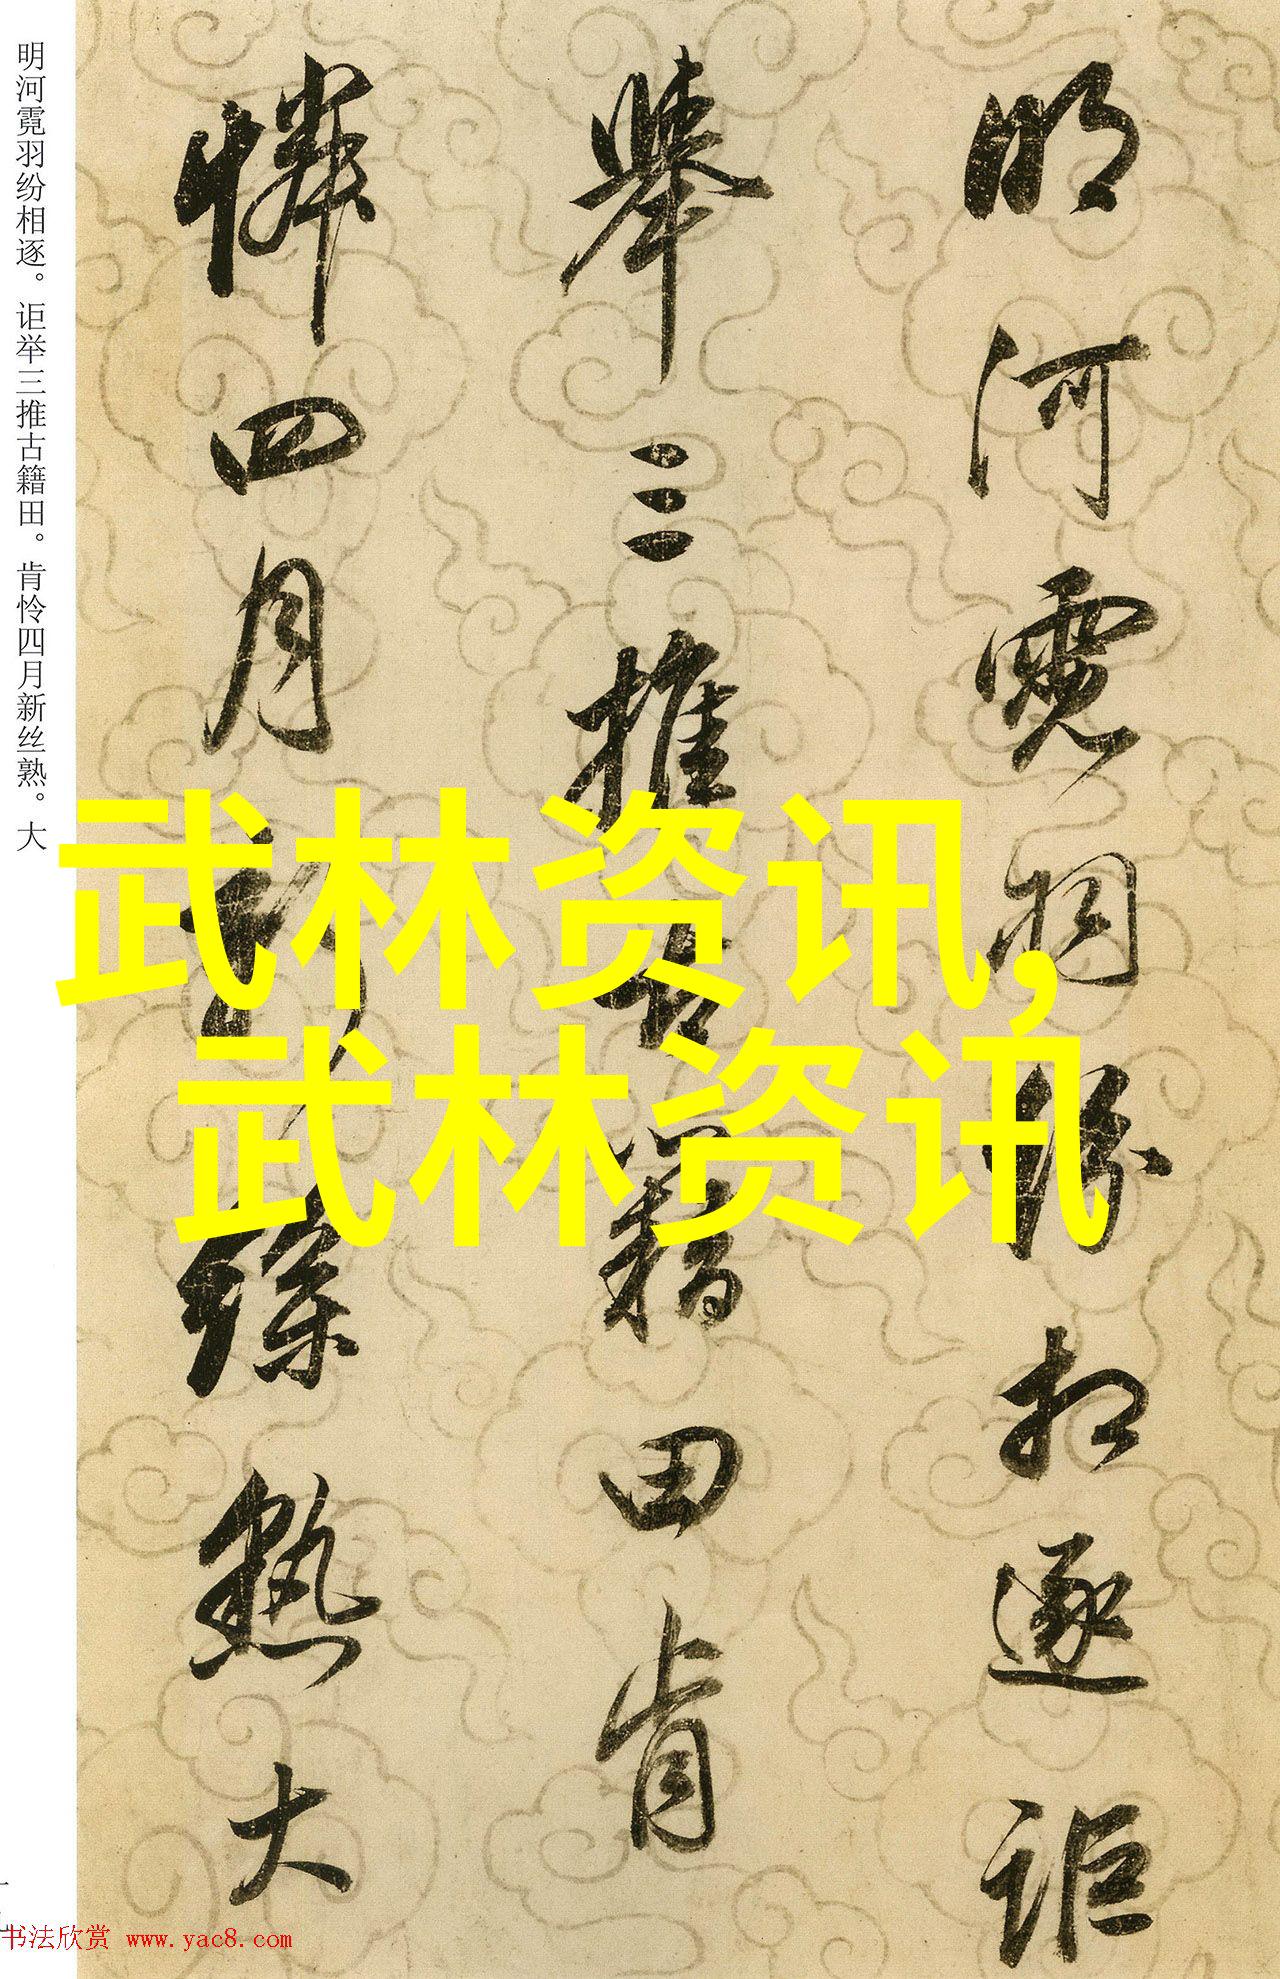 明河霓羽纷相逐。讵举三推古籍田。肯怜四月新丝熟。大
明河霓羽紛相逐詎
舉三推古籍田肯
憐四月新絲熟大
武林资讯,
武林资讯
书法欣赏 www.yac8.com